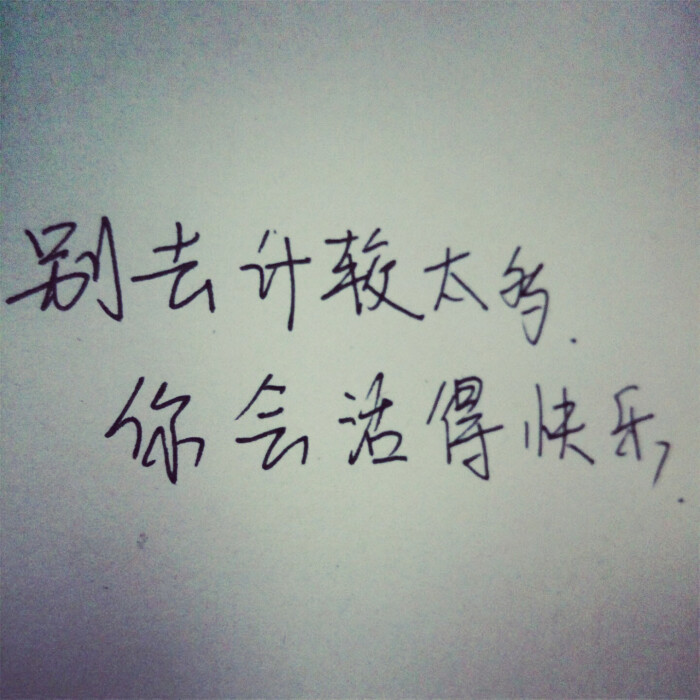 别去计较太多.
你会活得快乐,.